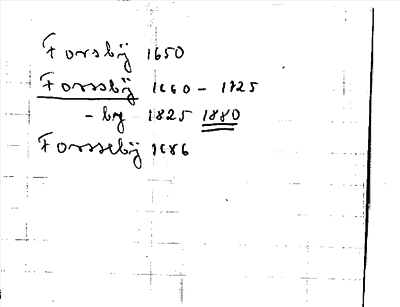 Forsbÿ 1650
Forssbÿ 1660 - 1725
- by 1825 1880
Forssebÿ 1686